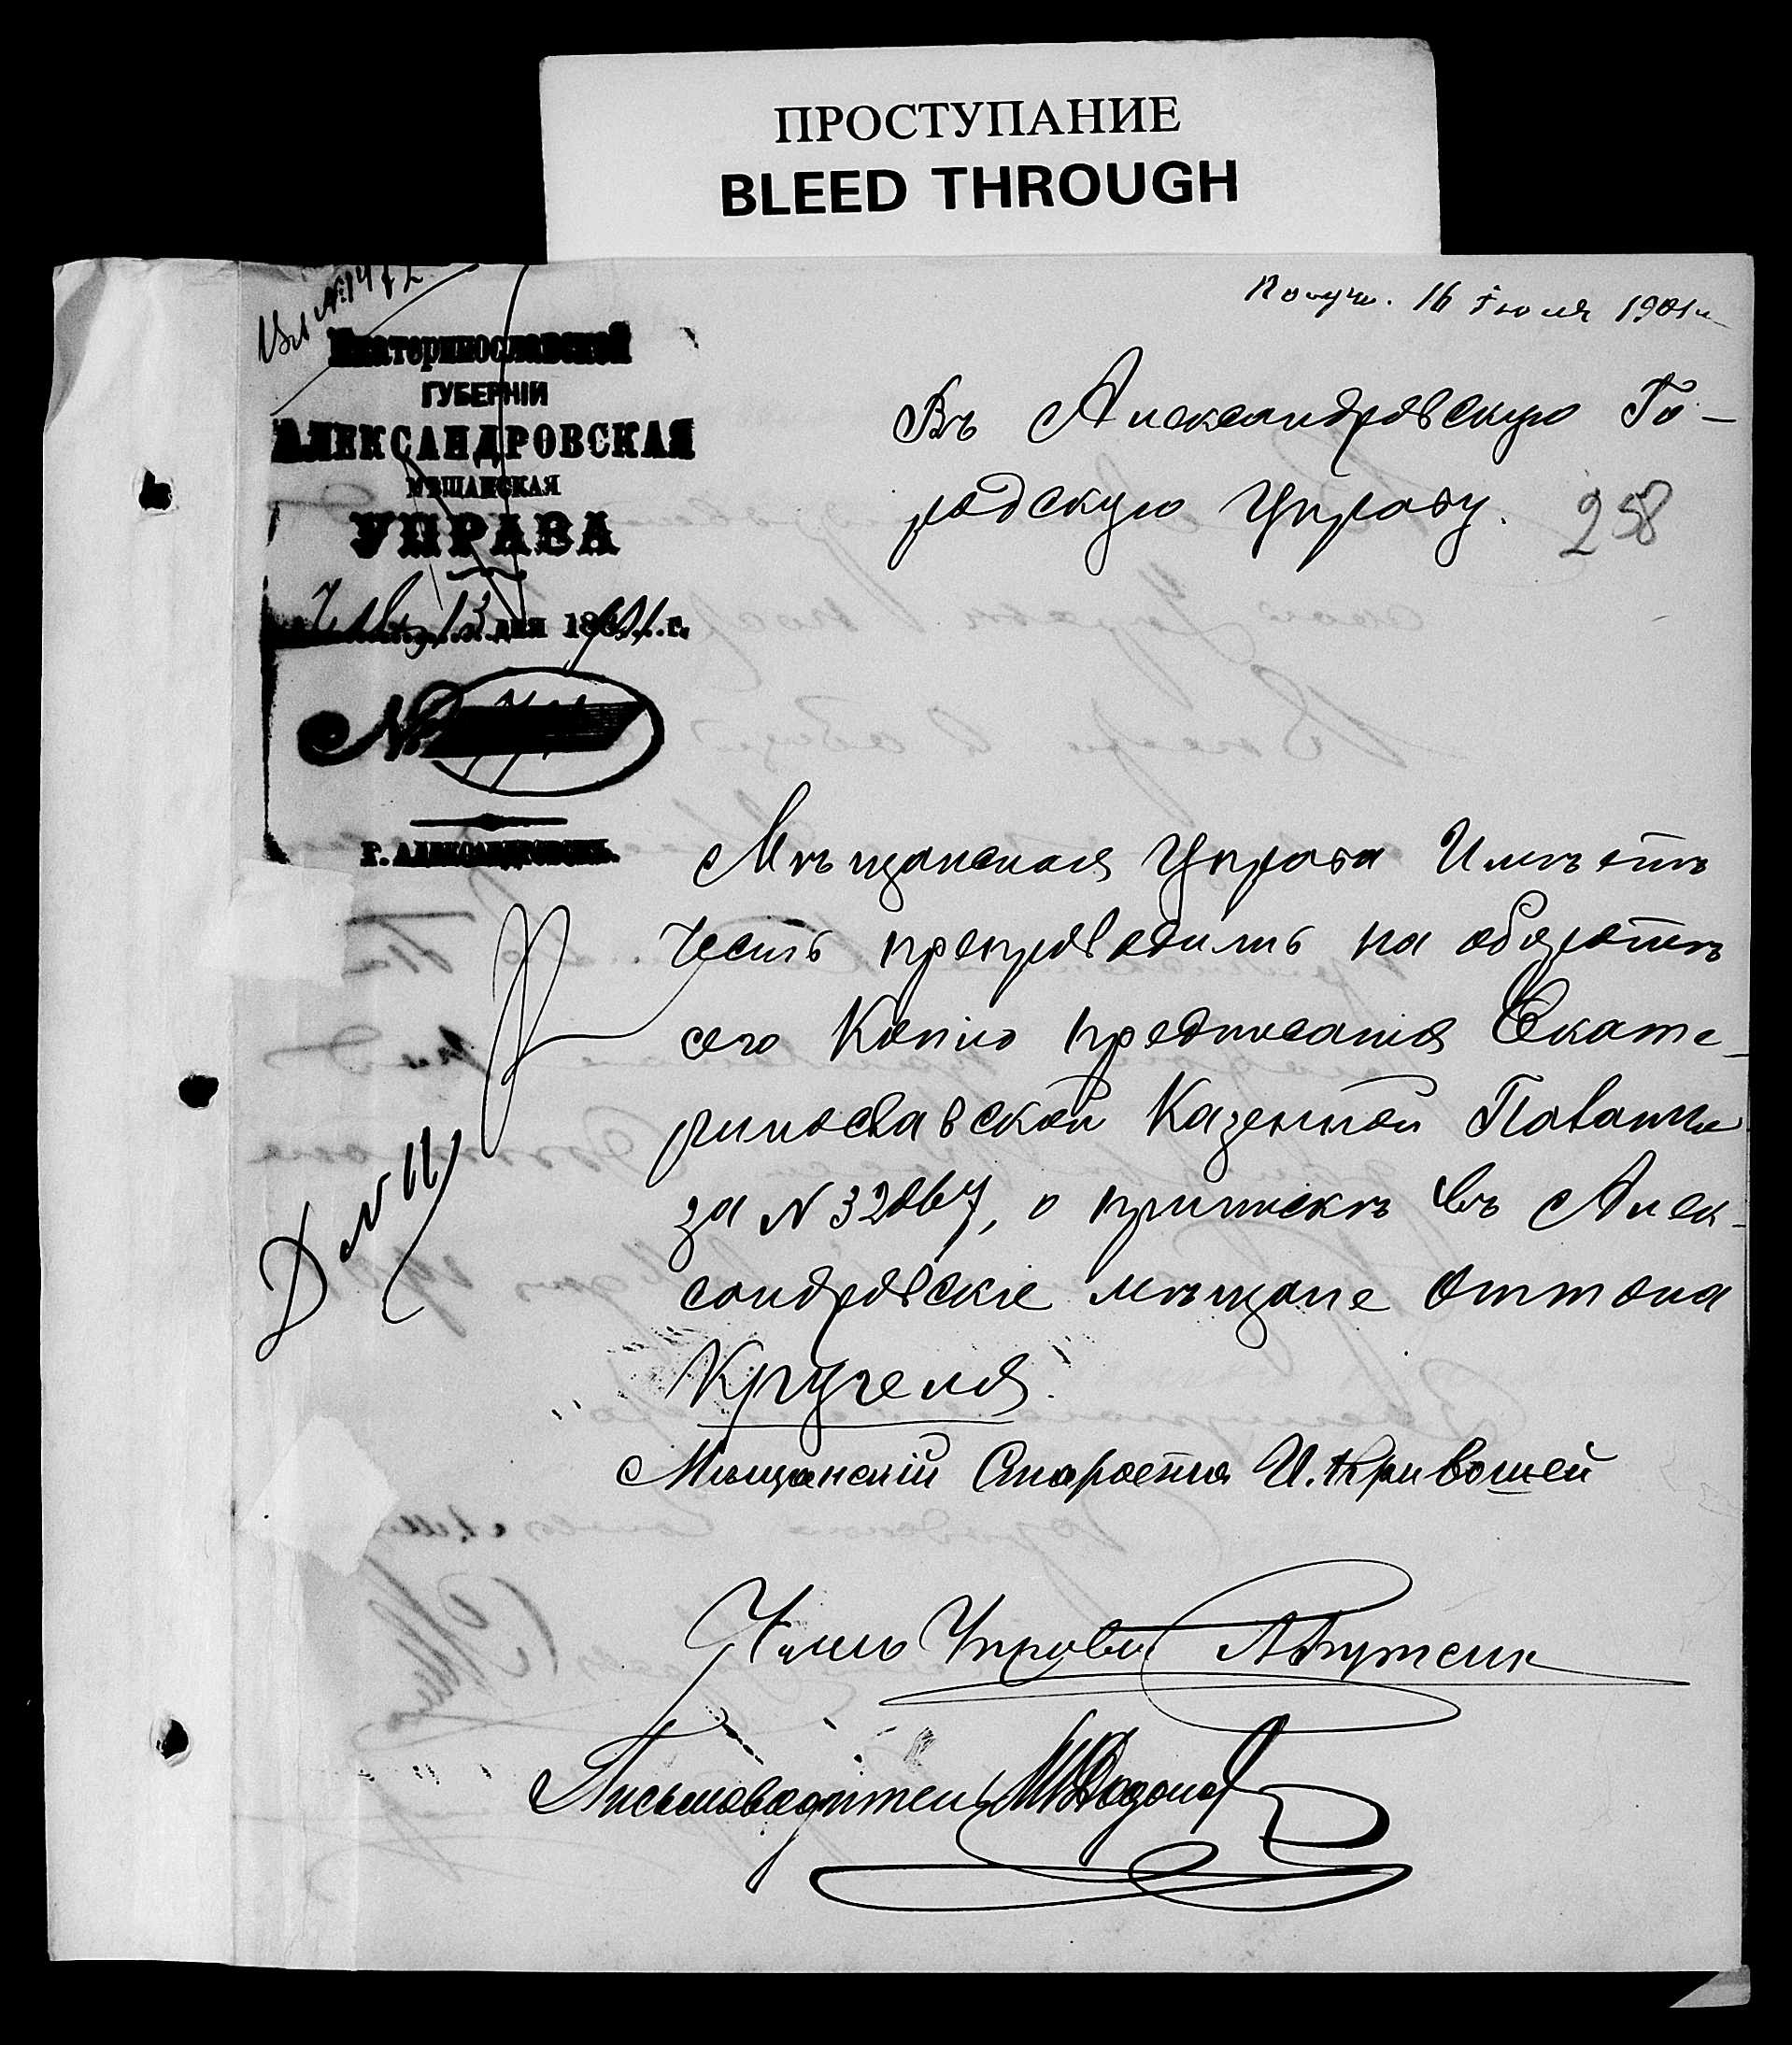 ПРОСТУПАНИЕ
BLEED THROUGH
Получ. 16 Іюля 1901 г.
Екатеринославской
ГУБЕРНІИ
АЛЕКСАНДРОВСКАЯ
МѢЩАНСКАЯ
УПРАВА
13 дня 1901 г.
№
Г. АЛЕКСАНДРОВСКЪ.
Въ Александровскую Го-
родскую Управу.
258
Мѣщанская Управа Имѣетъ
честь препроводить на оборотѣ
сего Копію предписанія Екате-
ринославской Казенной Палаты
за N 32067, о припискѣ въ Алек-
сандровскіе мѣщане Оттона
Кругеля.
Д N 11
Мѣщанскій Староста И. Кривошей
Членъ Управы
Письмоводитель